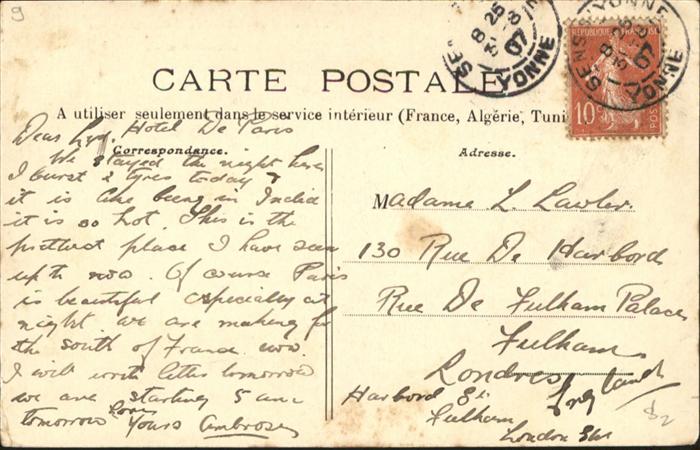 9
CARTE POSTALE
A utiliser seulement dans le service intérieur (France, Algérie, Tuni
Correspondance.
Adresse.
SENS YONNE
8 25
31 -8
07
SENS YONNE
8 25
31 -8
07
REPUBLIQUE FRANÇAISE
10
POSTES
Dear Hotel De Paris
We stayed the night here
I burst 2 tyres today &
it is like being in India
it is so hot. This is the
prettiest place I have seen
up to now. Of course Paris
is beautiful especially at
night we are making for
the south of France now.
I will write letter tomorrow
we are starting 5 am
tomorrow Love
Yours Ambrose
Madame L Lawler.
130 Rue De Harbord
Rue De Fulham Palace
Fulham
Londres England
Harbord St.
Fulham
London SW